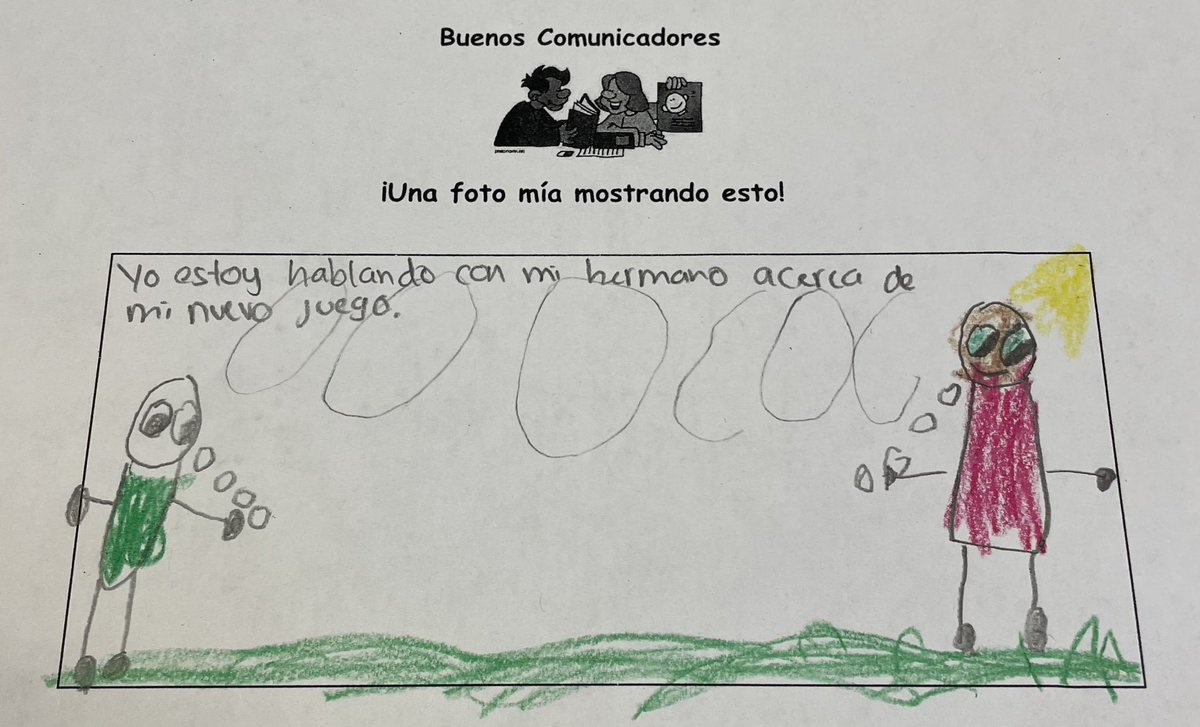 Buenos Comunicadores
¡Una foto mía mostrando esto!
Yo estoy hablando con mi hermano acerca de
mi nuevo juego.